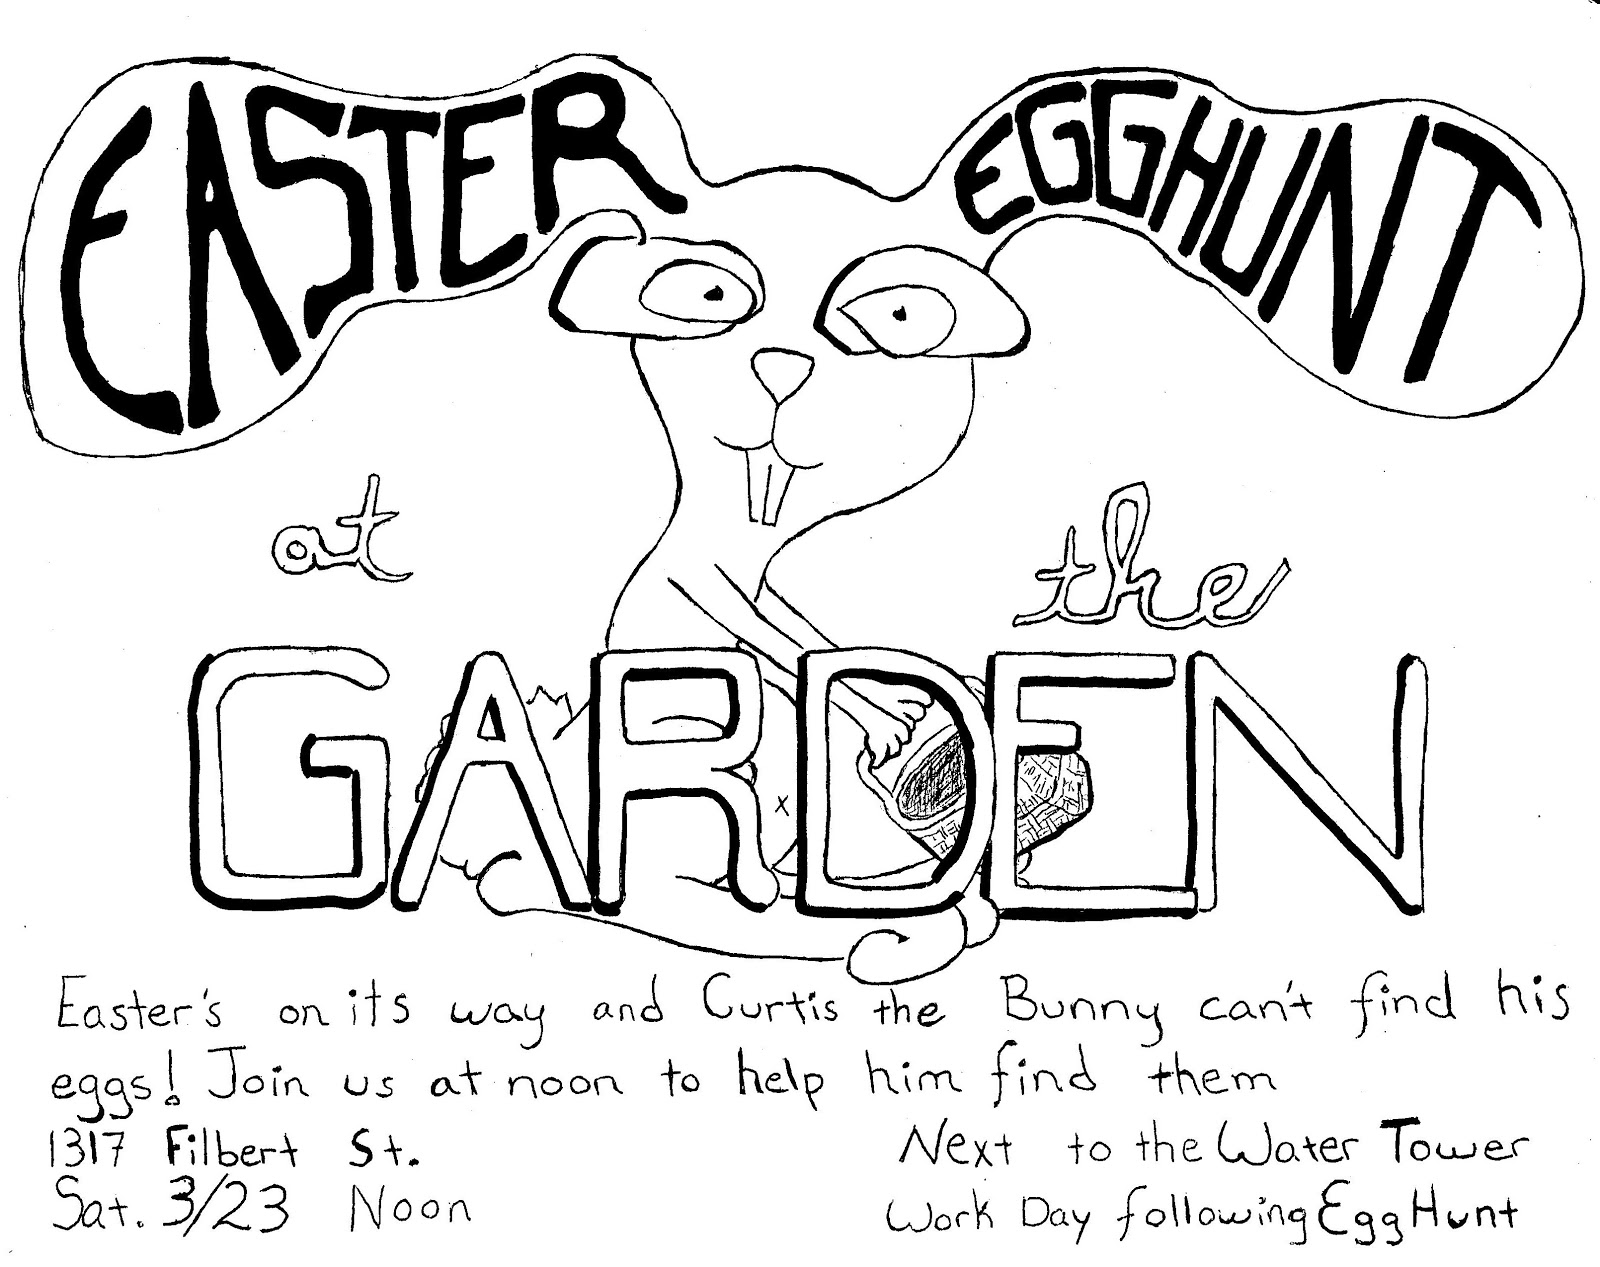 EASTER EGG HUNT
at the
GARDEN
Easter's on its way and Curtis the Bunny can't find his
eggs! Join us at noon to help him find them
1317 Filbert St.
Next to the Water Tower
Sat. 3/23 Noon
Work Day following Egg Hunt